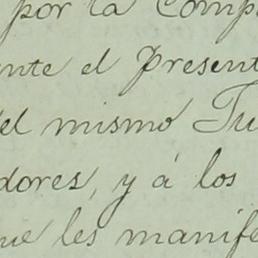 por la Comp
nte el presen
el mismo Tu
dores, y á los
ue les manife